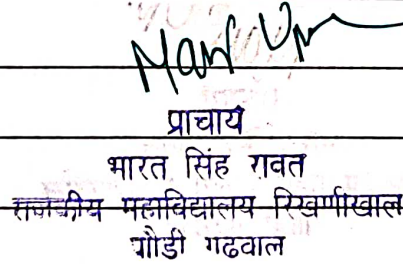 प्राचार्य
भारत सिंह रावत
राजकीय महाविद्यालय रिखणीखाल
पौडी गढवाल